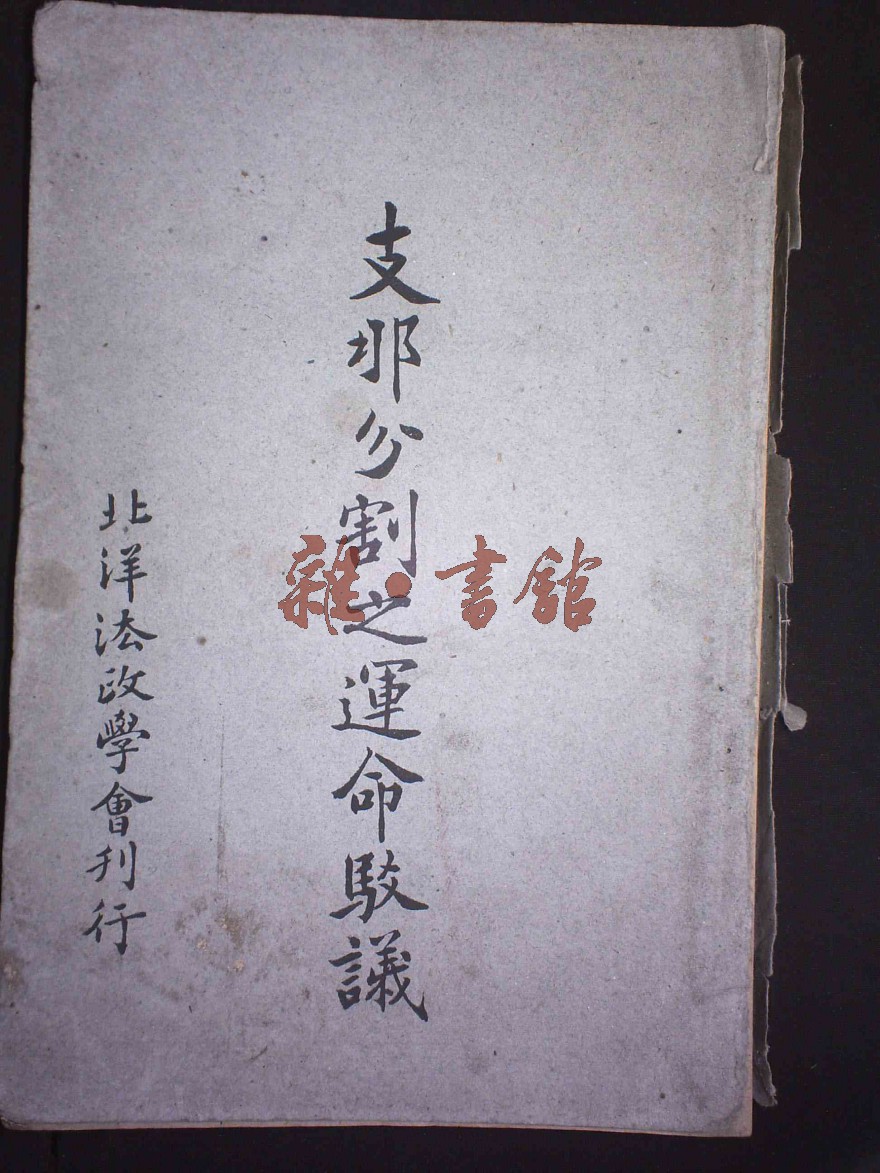 支那分割之運命駁議
北洋法政學會刊行
雜·書館